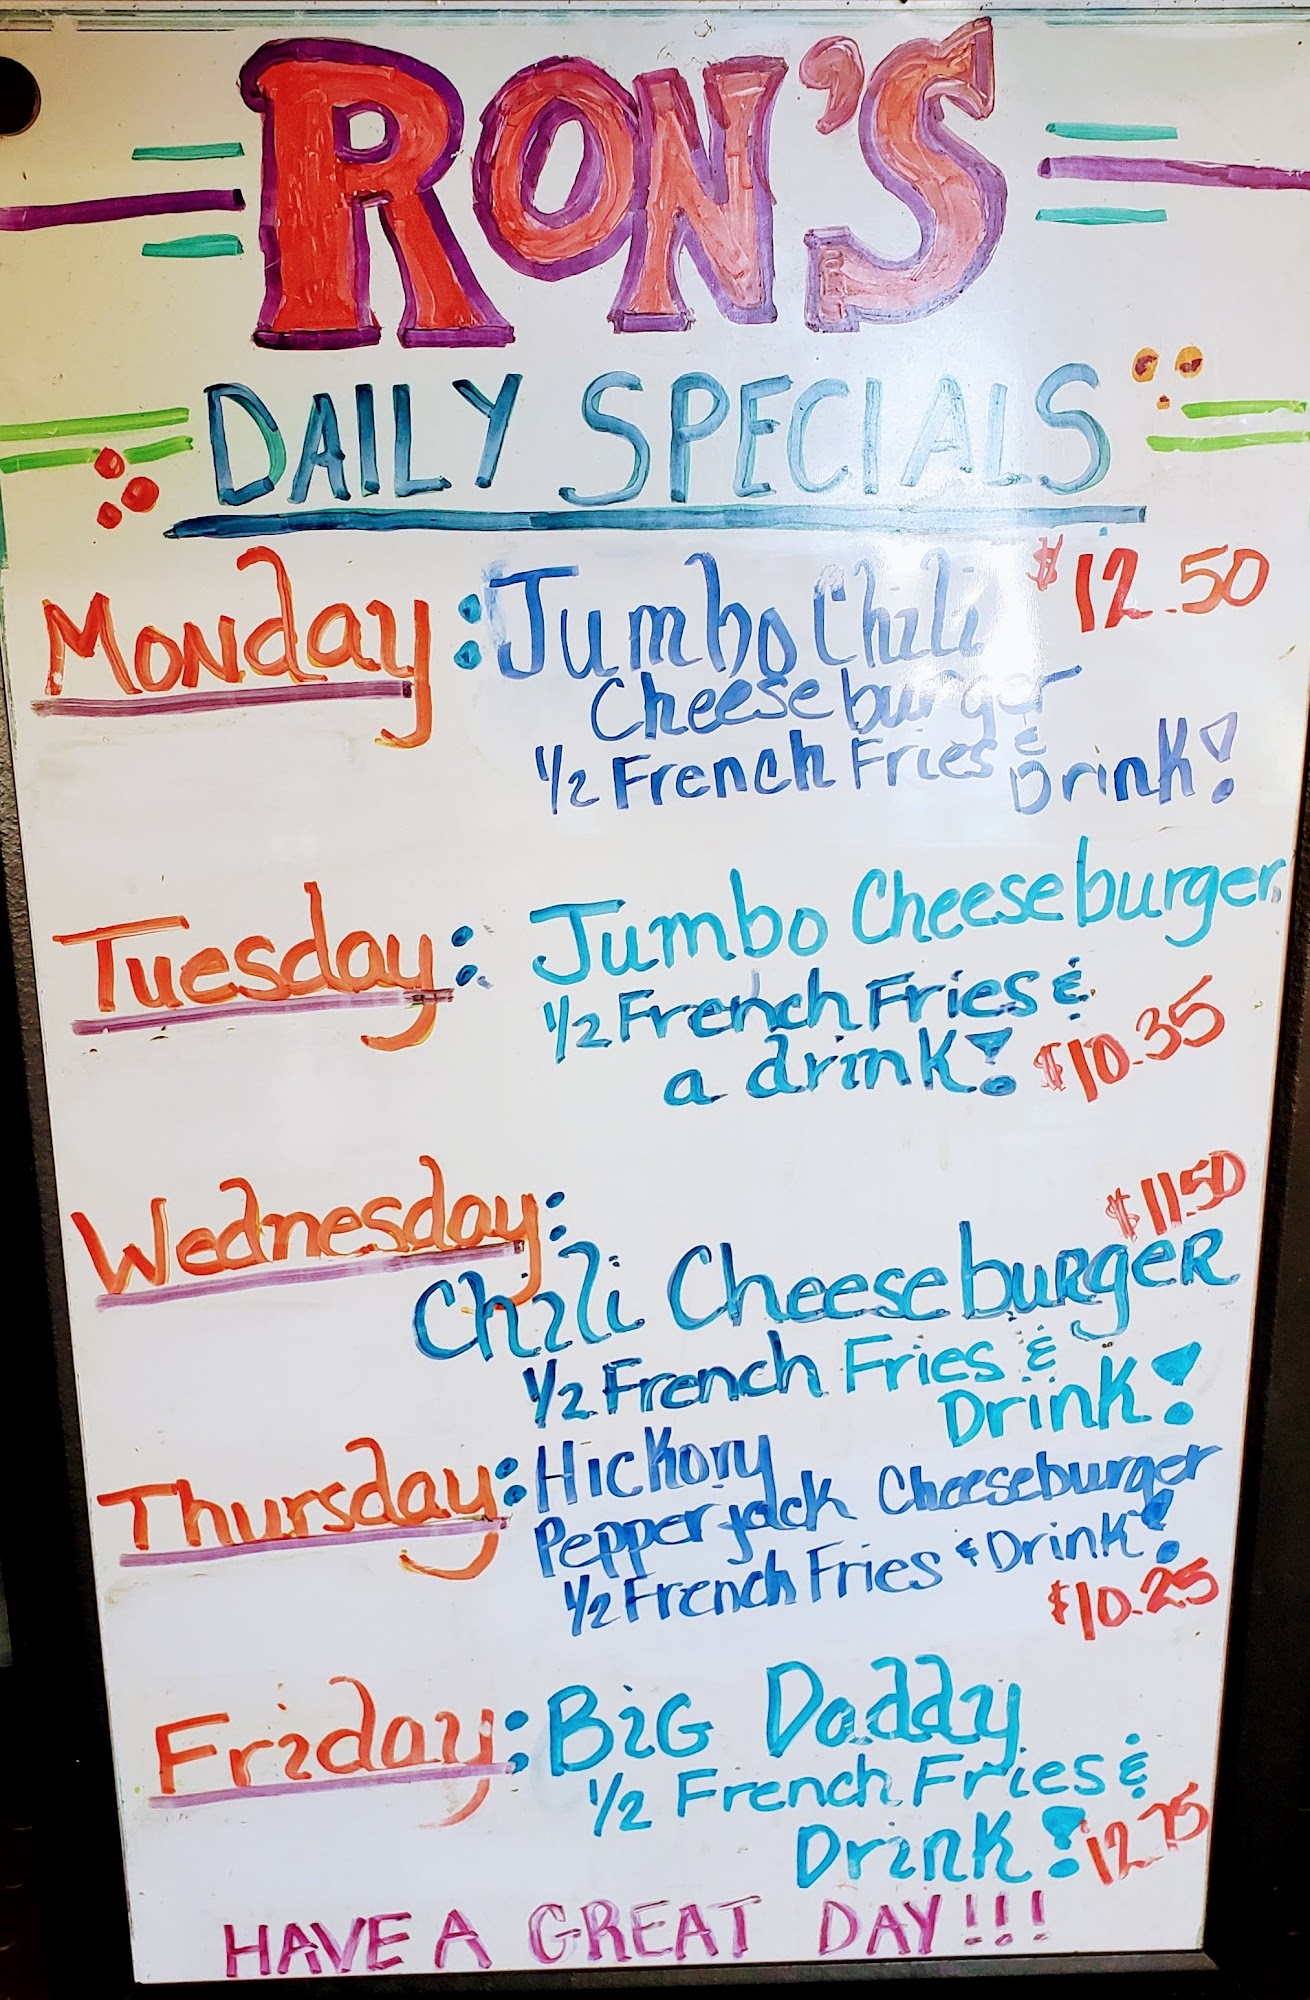 RON'S
DAILY SPECIALS
Monday: Jumbo Chili $12.50
Cheeseburger
1/2 French Fries &
Drink!
Tuesday: Jumbo Cheeseburger
1/2 French Fries &
a drink! $10.35
Wednesday: $11.50
Chili Cheeseburger
1/2 French Fries &
Drink!
Thursday: Hickory
Pepperjack Cheeseburger
1/2 French Fries & Drink!
$10.25
Friday: Big Daddy
1/2 French Fries &
Drink! 12.75
HAVE A GREAT DAY!!!